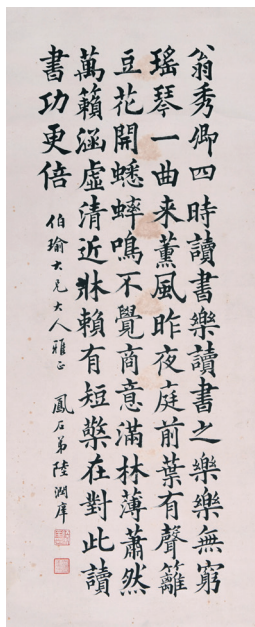 翁秀卿四時讀書樂讀書之樂樂無窮
瑤琴一曲来薰風昨夜庭前葉有聲籬
豆花開蟋蟀鳴不覺商意滿林薄蕭然
萬籟涵虛清近牀賴有短檠在對此讀
書功更倍
伯瑜大兄大人雅正 鳳石弟陸潤庠